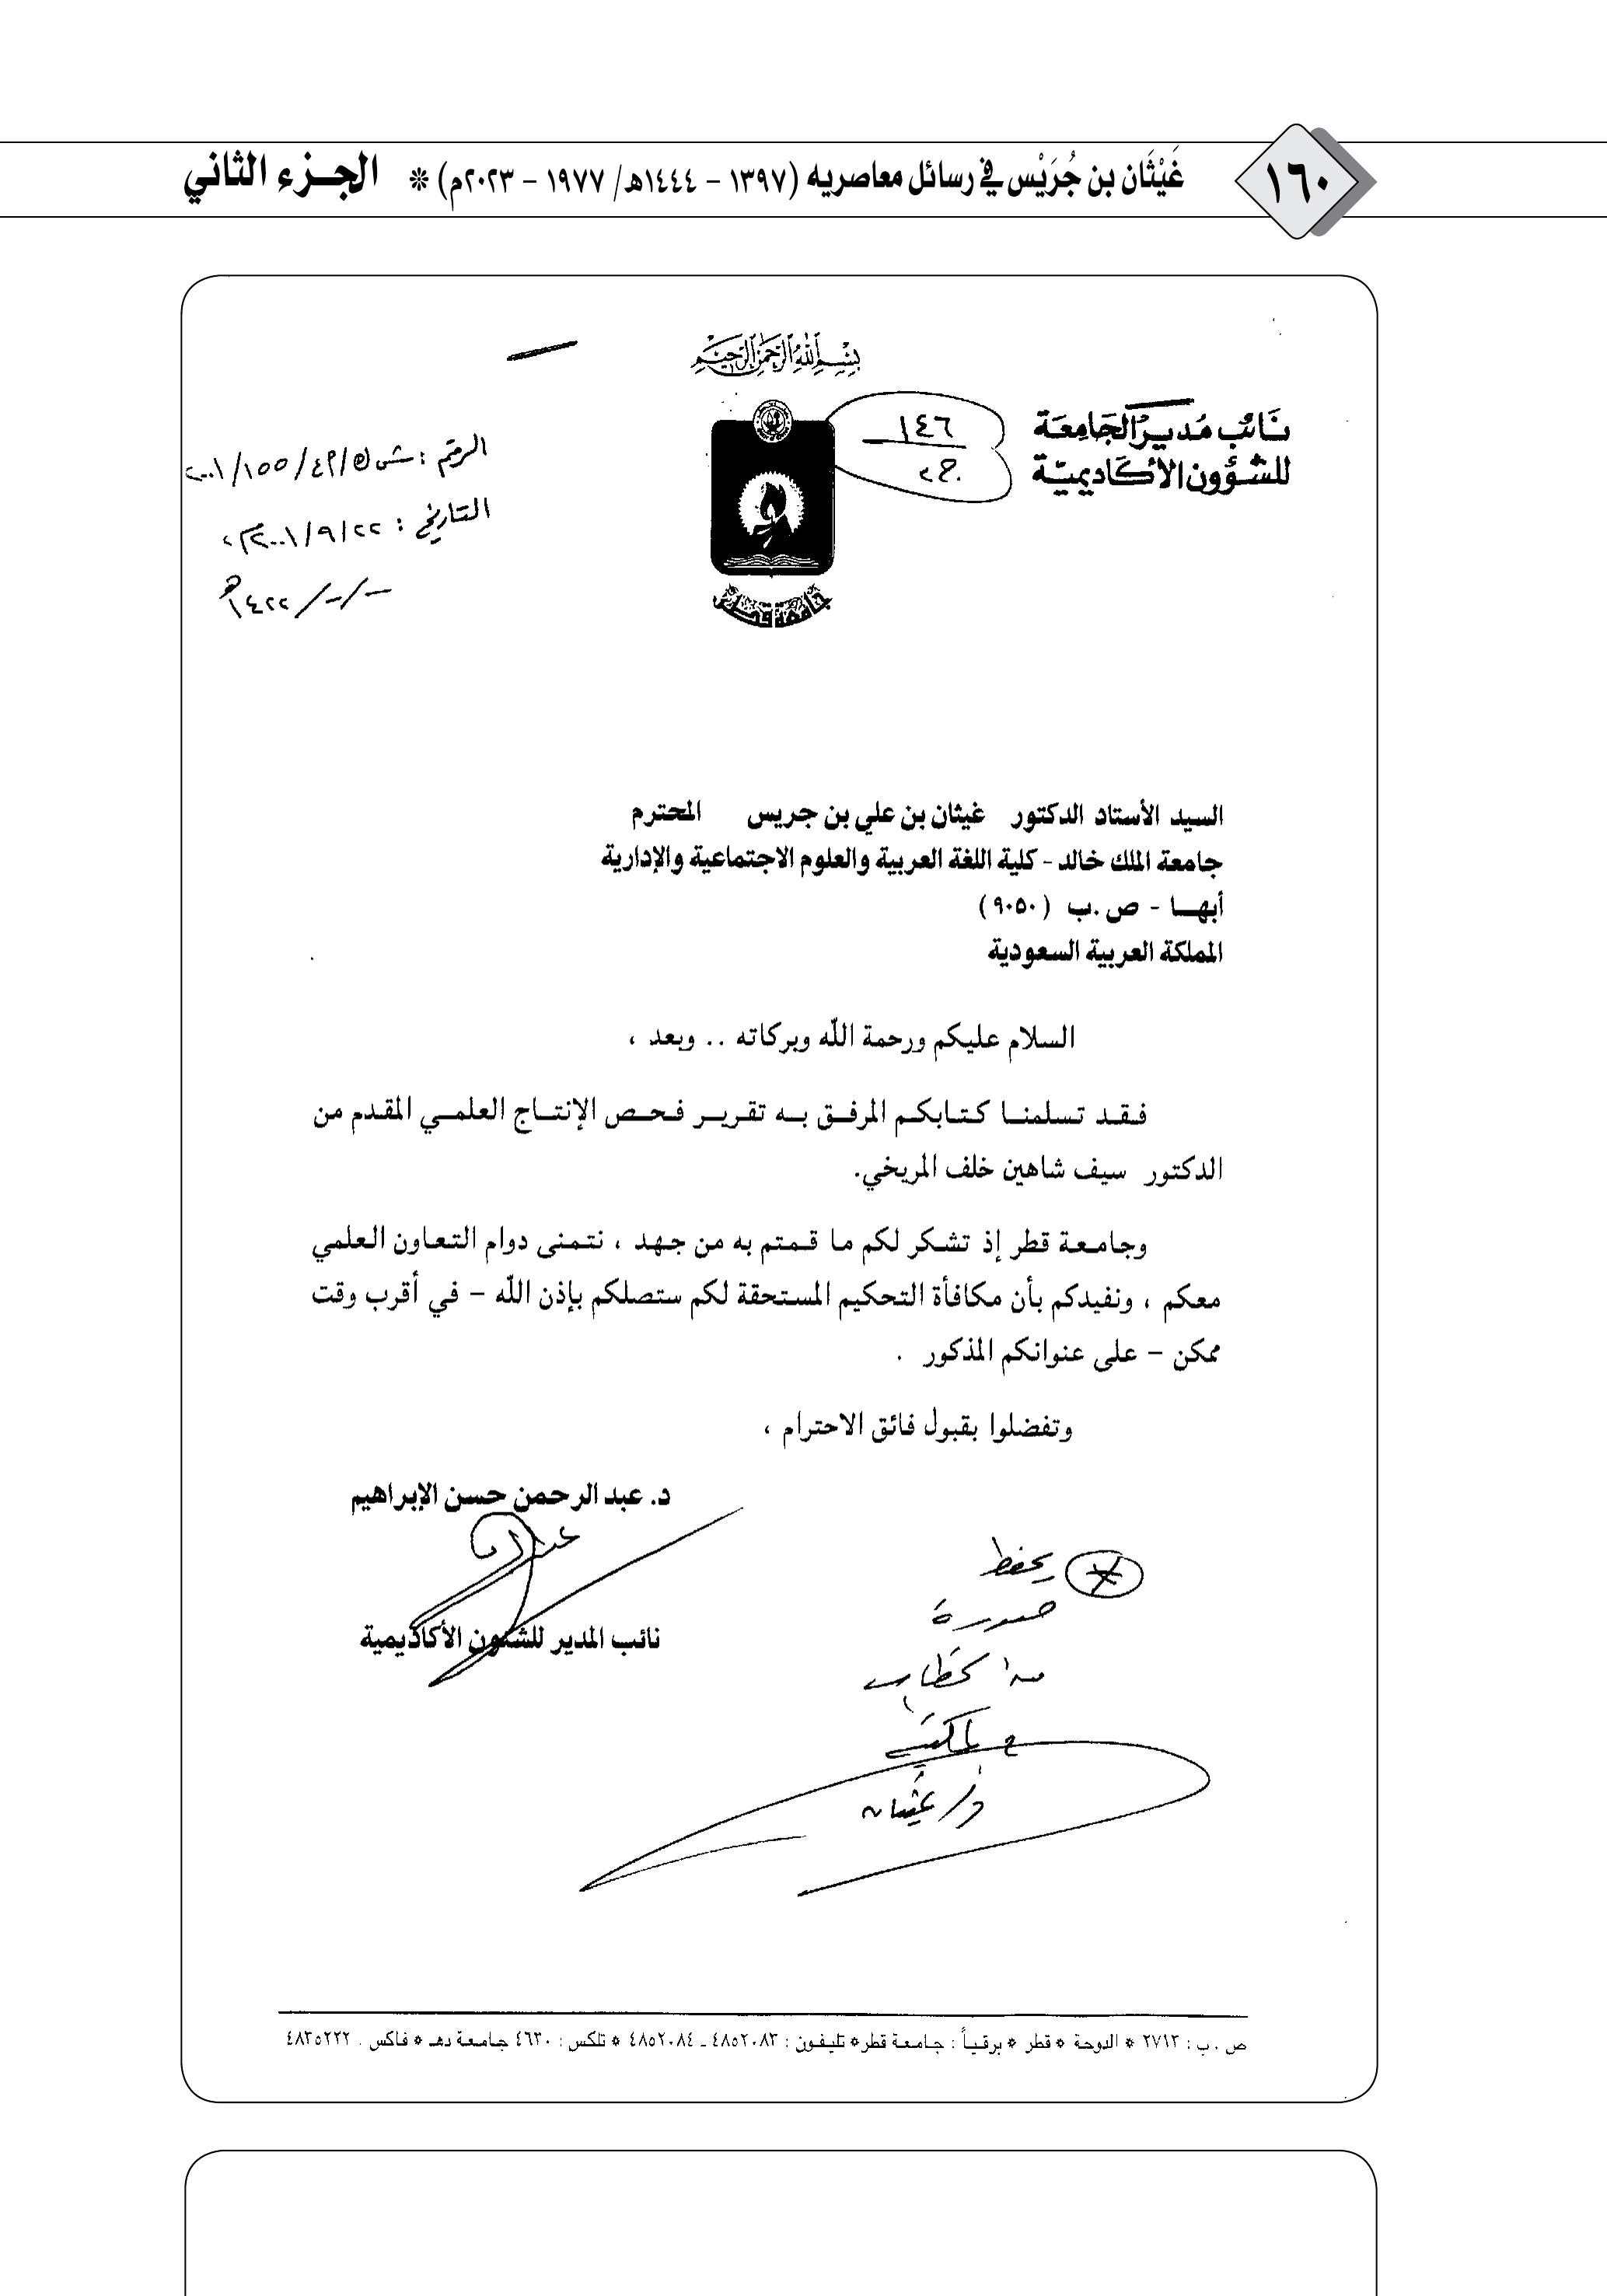 ١٦٠
غَيْثَان بن جُرَيْس في رسائل معاصريه (١٣٩٧ – ١٤٤٤هـ/ ١٩٧٧ – ٢٠٢٣م) * الجزء الثاني
بسم الله الرحمن الرحيم
نائب مدير الجامعة
للشؤون الأكاديمية
١٤٦
ج٢
جامعة قطر
الرقم : ش ك/٤٩/١٥٥/٢٠٠١
التاريخ : ٢٠٠١/٩/٢٢م
-/-/١٤٢٢هـ
السيد الأستاد الدكتور غيثان بن علي بن جريس المحترم
جامعة الملك خالد - كلية اللغة العربية والعلوم الاجتماعية والإدارية
أبهـا - ص.ب (٩٠٥٠)
المملكة العربية السعودية
السلام عليكم ورحمة الله وبركاته .. وبعد ،
فقد تسلمنا كتابكم المرفق به تقرير فحص الإنتاج العلمي المقدم من
الدكتور سيف شاهين خلف المريخي.
وجامعة قطر إذ تشكر لكم ما قمتم به من جهد ، نتمنى دوام التعاون العلمي
معكم ، ونفيدكم بأن مكافأة التحكيم المستحقة لكم ستصلكم بإذن الله – في أقرب وقت
ممكن – على عنوانكم المذكور .
وتفضلوا بقبول فائق الاحترام ،
د. عبد الرحمن حسن الإبراهيم
نائب المدير للشئون الأكاديمية
يحفظ
صورة
من الخطاب
د/ غيثان
ص . ب : ٢٧١٣ * الدوحة * قطر * برقياً : جامعة قطر * تليفون : ٤٨٥٢٠٨٣ ـ ٤٨٥٢٠٨٤ * تلكس : ٤٦٣٠ جامعة دهـ * فاكس . ٤٨٣٥٢٢٢